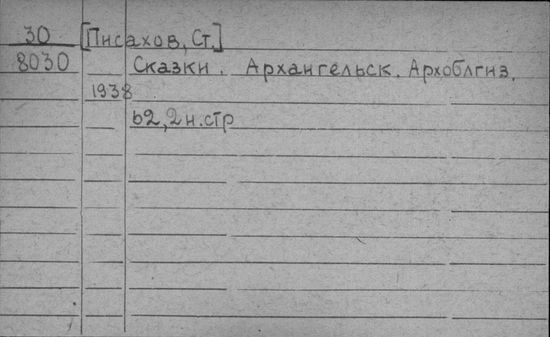 30 [Писахов, Ст.]
8030 Сказки. Архангельск.Архоблгиз.
1938
62, 2 н. стр